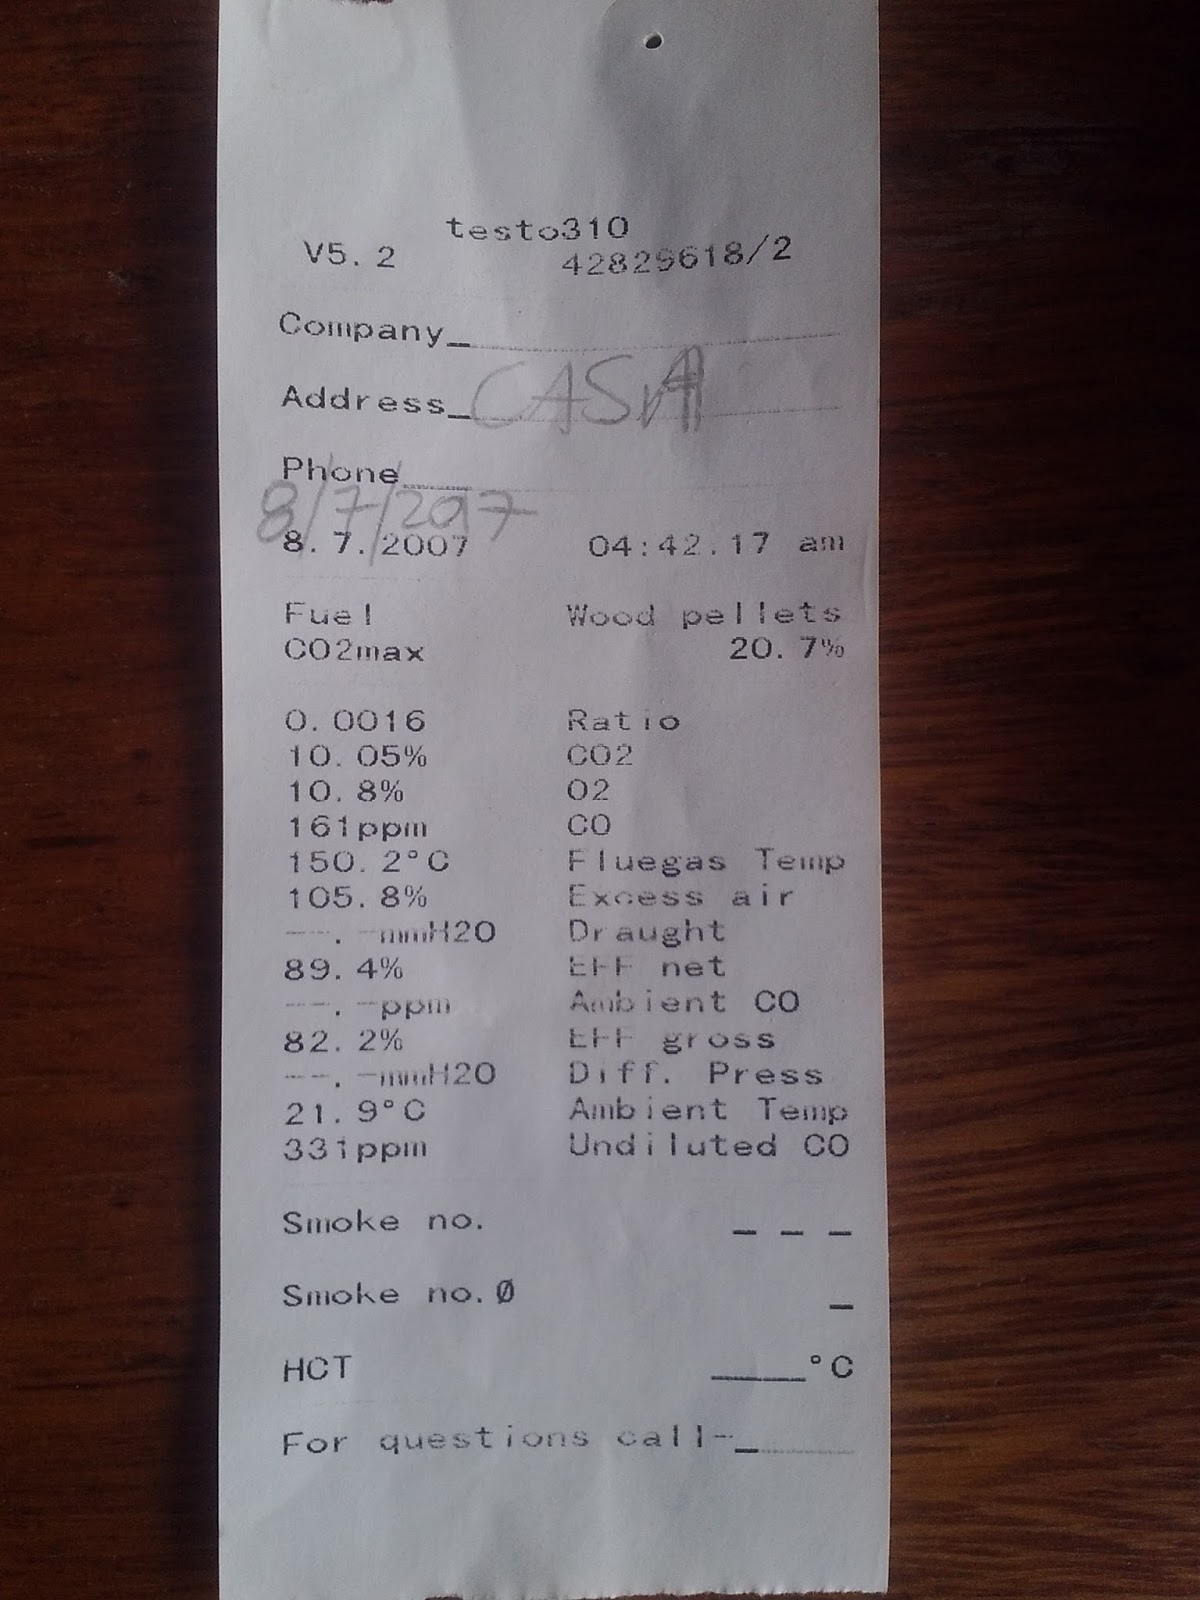 testo310
V5.2 42829618/2
Company_
Address_ CASA
Phone
8/7/2017
8.7.2007 04:42.17 am
Fuel Wood pellets
CO2max 20.7%
0.0016 Ratio
10.05% CO2
10.8% O2
161ppm CO
150.2°C Fluegas Temp
105.8% Excess air
--.-mmH2O Draught
89.4% EFF net
--.-ppm Ambient CO
82.2% EFF gross
--.-mmH2O Diff. Press
21.9°C Ambient Temp
331ppm Undiluted CO
Smoke no. _ _ _
Smoke no.0 _
HCT ____°C
For questions call-_